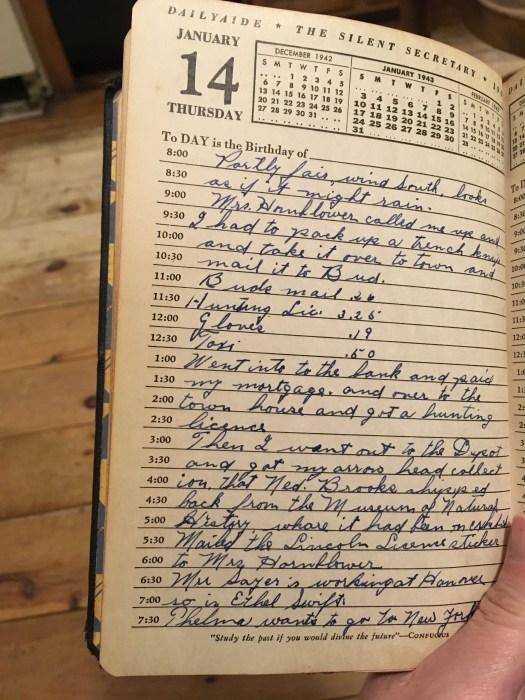 DAILYAIDE * THE SILENT SECRETARY * 19
JANUARY
14
THURSDAY
DECEMBER 1942
S M T W T F S
.. .. 1 2 3 4 5
6 7 8 9 10 11 12
13 14 15 16 17 18 19
20 21 22 23 24 25 26
27 28 29 30 31 .. ..
JANUARY 1943
S M T W T F S
.. .. .. .. .. 1 2
3 4 5 6 7 8 9
10 11 12 13 14 15 16
17 18 19 20 21 22 23
24 25 26 27 28 29 30
31 .. .. .. .. .. ..
FEBRUARY
To DAY is the Birthday of
8:00 Partly fair, wind South, looks
8:30 as if it might rain.
9:00 Mrs. Hornblower called me up and
9:30 I had to pack up a trench knife
10:00 and take it over to town and
10:30 mail it to Bud.
11:00 Buds mail .26
11:30 Hunting Lic. 3.25
12:00 Gloves .19
12:30 Taxi .50
1:00 Went into to the bank and paid
1:30 my mortgage. and over to the
2:00 town house and got a hunting
2:30 licence
3:00 Then I want out to the Depot
3:30 and got my arrow head collect
4:00 ion, that Ned. Brooks shipped
4:30 back from the Museum of Natural
5:00 History, whare it had ban on
5:30 Mailed the Lincoln License sticker
6:00 to Mrs Hornblower
6:30 Mrs Sayer is working at Hanover
7:00 so is Ethel Swift.
7:30 Thelma wants to go to New York
"Study the past if you would divine the future"—CONFUCIUS